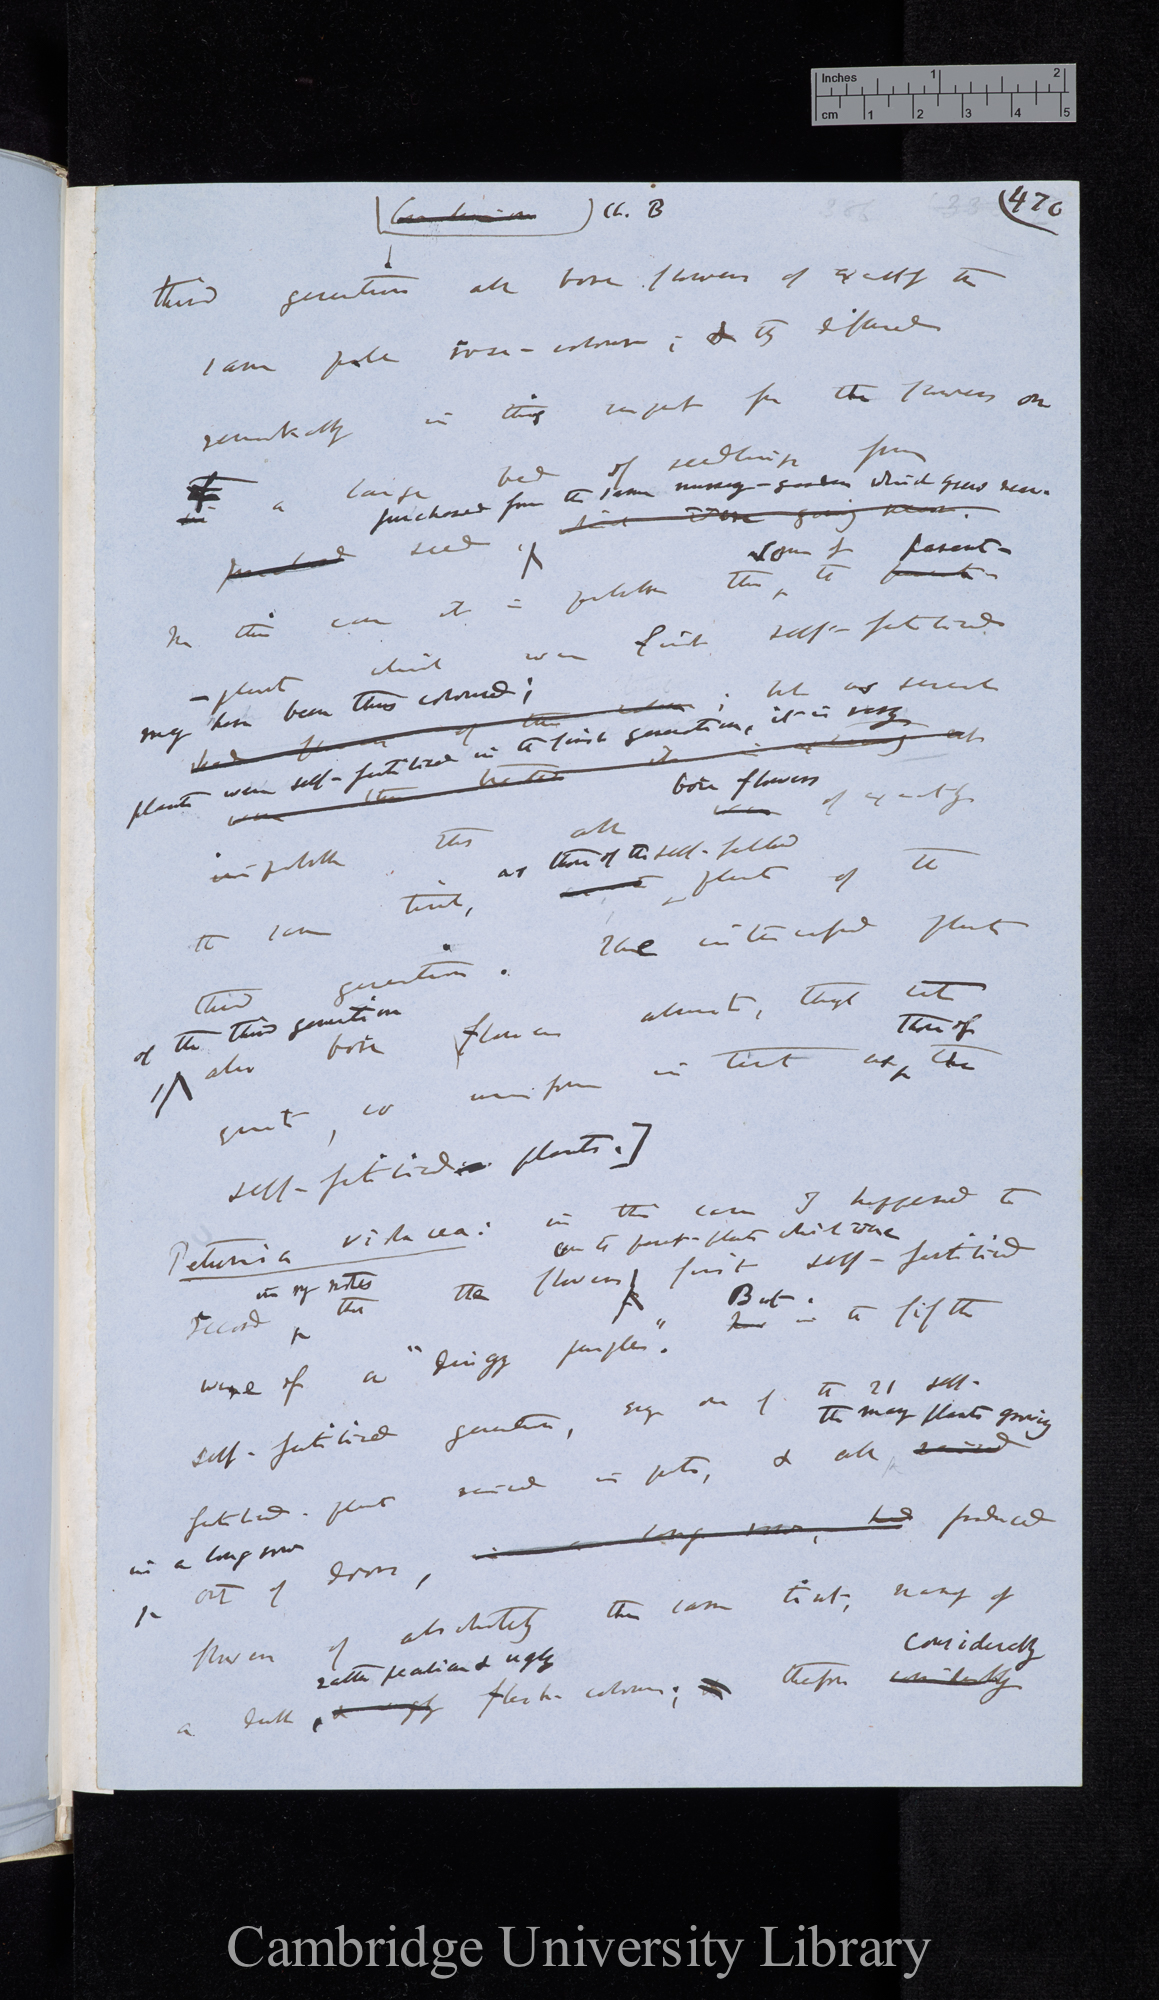 Inches 1 2
cm 1 2 3 4 5
Ch. B
(470
third generation all bore flowers of exactly the
same pale rose-colour; & they differed
remarkably in this respect from the flowers on
a large bed of seedlings from
purchased from the same nursery-garden which grew near.
seed
some of parent-
In this case it is possible that the
-plants which were first self-fertilised
may have been thus coloured;
; but as several
plants were self-fertilised in the first generation, it is very
bore flowers
improbable that all of exactly
as those of the self-fertilised
the same tint, plants of the
third generation. The intercrossed plants
of the third generation
also bore flowers almost, though not
those of
quite, so uniform in tint as the
self-fertilised plants.]
Petunia violacea: in this case I happened to
on the parent-plants which were
in my notes
record that the flowers first self-fertilised
But
were of a "dingy purple". in the fifth
self-fertilised generation, every one of the 21 self-
the many plants growing
fertilised plants raised in pots, & all raised
in a long row
out of doors, in a long row, had produced
flowers of absolutely the same tint, namely of
rather peculiar & ugly
considerably
a dull, & ugly flesh colour; therefore considerably
Cambridge University Library